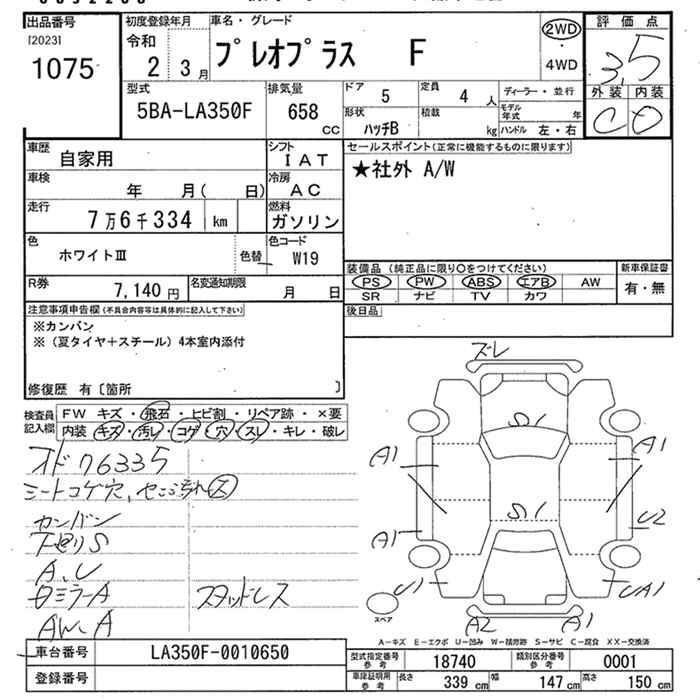 出品番号
[2023]
1075
初度登録年月
令和
2 3月
車名・グレード
プレオプラス F
2WD
・
4WD
評価点
3.5
外装 内装
C D
型式
5BA-LA350F
排気量
658
CC
ドア
5
定員
4 人
ディーラー・並行
形状
ハッチB
積載
kg
モデル
年式 年
ハンドル 左・右
車歴
自家用
シフト
IAT
セールスポイント(正常に機能するものに限ります)
★社外 A/W
車検
年 月( 日)
冷房
AC
走行
7万6千334 km
燃料
ガソリン
色
ホワイトⅢ
色替
色コード
W19
装備品 (純正品に限り○をつけてください)
PS PW ABS エアB AW
SR ナビ TV カワ
新車保証書
有・無
R券
7,140円
名変通知期限
月 日
後日品
注意事項申告欄(不具合内容等は具体的に記入して下さい)
※カンバン
※(夏タイヤ+スチール)4本室内添付
修復歴 有〔箇所 〕
検査員
記入欄
FW キズ・飛石・ヒビ割・リペア跡・×要
内装 キズ・汚レ・コゲ・穴・スレ・キレ・破レ
オド76335
シートコゲ穴、
カンバン
下廻りS
A、U
ロミラーA
スタッドレス
AW、A
ズレ
S1
A1 A1
S1
A1 U2
U1 UA1
スペア
A2 A1
A-キズ E-エクボ U-凹み W-補修跡 S-サビ C-腐食 XX-交換済
車台番号
LA350F-0010650
登録番号
型式指定番号
参考
18740
類別区分番号
参考
0001
車庫証明用
参考
長さ
339 cm
幅
147 cm
高さ
150 cm